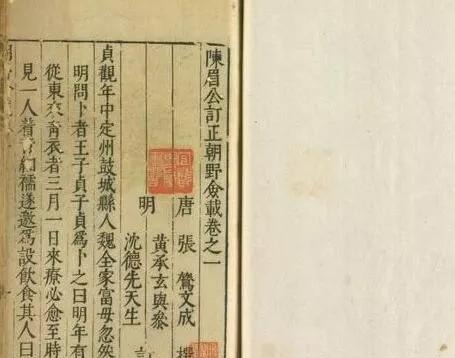 陳眉公訂正朝野僉載卷之一
唐 張 鷟文成 撰
明 黃承玄與參
沈德先天生 訂
貞觀年中定州鼓城縣人魏全家富母忽然
明問卜者王子貞子貞爲卜之曰明年有
從東來青衣者三月一日來療必愈至時
見一人着青紬襦遂邀爲設飲食其人曰